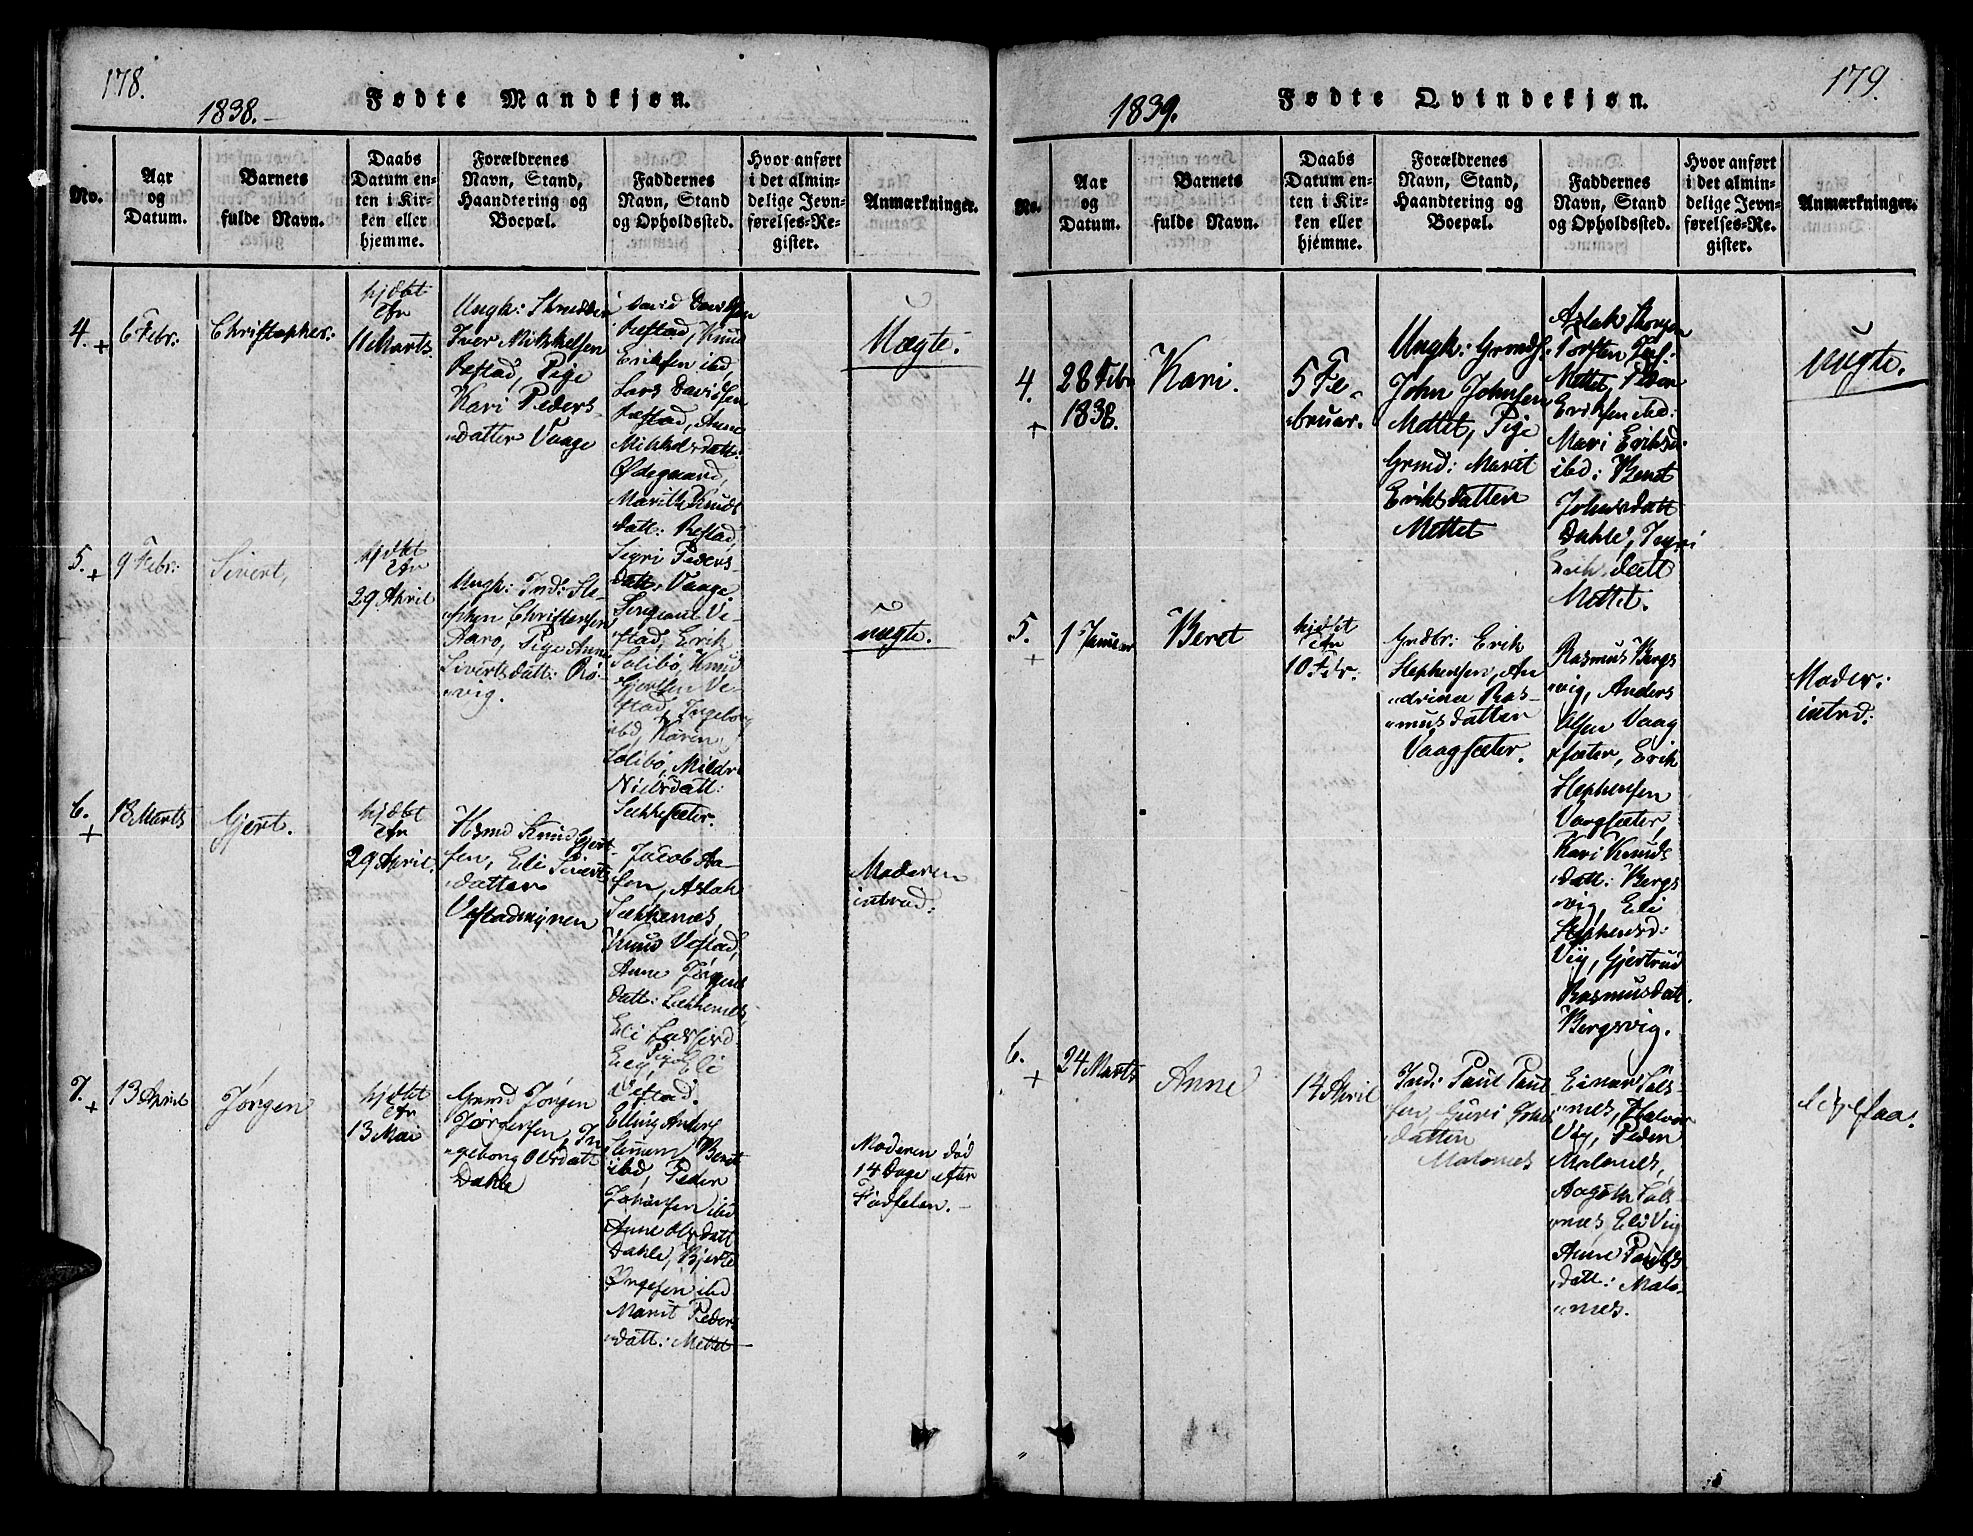 178.
1838.
Fødte Mandkjøn.
No.
Aar
og
Datum.
Barnets
fulde Navn.
Daabs
Datum en-
ten i Kir-
ken eller
hjemme.
Forældrenes
Navn, Stand,
Haandtering og
Boepæl.
Faddernes
Navn, Stand
og Opholdssted.
Hvor anført
i det almin-
delige Jevn-
førelses-Re-
gister.
Anmærkninger.
4.
+
6 Febr:
Christopher.
hjdbt
11 Marts
Ungk:
Iver Mikkelsen
Pige
Kari Peders
datter Vaage
David Davidsen
Knud
Eriksen ibd,
Lars Davidsen
Anne
Mikkelsdatt:
Ødegaard,
Marith Knuds
datt:
Sigri Peders-
datt: Vaage.
Uægte.
5.
+
9 Febr:
Sivert,
hjdbt
29 April
Ungk: Ind: Ste-
phen Christensen
Pige Anne
Sivertsdatt: Rø-
vig.
Sergeant Ve-
stad, Erik
Solibø, Knud
Gjertsen Ve-
stad, Ingeborg
ibd, Karen
Solibø, Mildri
Nielsdatt:
Sekkesæter.
uægte.
6.
+
18 Marts
Gjert.
hjdbt
29 April.
Hsmd Knud Gjert-
sen, Eli Sivert
datter
Vestadmyren
Jacob Aa-
sen, Aslak
Sekkenæs,
Knud Vestad,
Anne Jørgens
datt: Sekkenes,
Eli Larsesd:
Pige Eli
Vestad.
Moderen
introd:
7.
+
13 April
Jørgen
hjdbt
13 Mai
Grmd Jørgen
Jørgensen, In
geborg Olsdatt
Dahle
Elling Anders
Beret
ibd, Peder
Johansen ibd
Anne Olsdatt
Dahle, Bjerte
ibd
Marit Peder-
datt: Mettet
Moderen død
14 Dage efter
Fødselen.
179.
1839.
Fødte Qvindekjøn.
No.
Aar
og
Datum.
Barnets
fulde Navn.
Daabs
Datum en-
ten i Kir-
ken eller
hjemme.
Forældrenes
Navn, Stand,
Haandtering og
Boepæl.
Faddernes
Navn, Stand
og Opholdssted.
Hvor anført
i det almin-
delige Jevn-
førelses-Re-
gister.
Anmærkninger.
4.
+
28 Febr
1838.
Kari.
5 Fe-
bruar.
Ungk: Grmds:
John Johnsen
Mettet, Pige
Grmd: Marit
Eriksdatter
Mettet
Aslak
Torsten
Mettet, Peder
Eriksen ibd:
Mari Eriksd:
ibd: Beret
Johnsdatt
Dahle, Ingri
Eriksdatt
Mettet.
uægte.
5.
+
1 Januar
Beret
hjdbt
10 Febr.
Grdbr: Erik
Stephensen, An
drina Ras-
musdatter
Vaagsæter.
Rasmus Bergs
vig, Anders
Olsen Vaag
sæter, Erik
Stephensen
Vaagsæter,
Kari Knuds
datt: Bergs
vig, Eli
Stephensd:
Vig, Gjertrud
Rasmusdatt.
Bergsvig.
Moder:
intrd:
6.
+
24 Marts
Anne
14 April
Ind: Paul Paul
sen, Guri
datter
Malones
Einar Søls-
nes, Halvor
Vig, Peder
Malones,
Aagoth Søls-
nes, Eli Vig
Anne Pauls
datt: Malo-
nes.